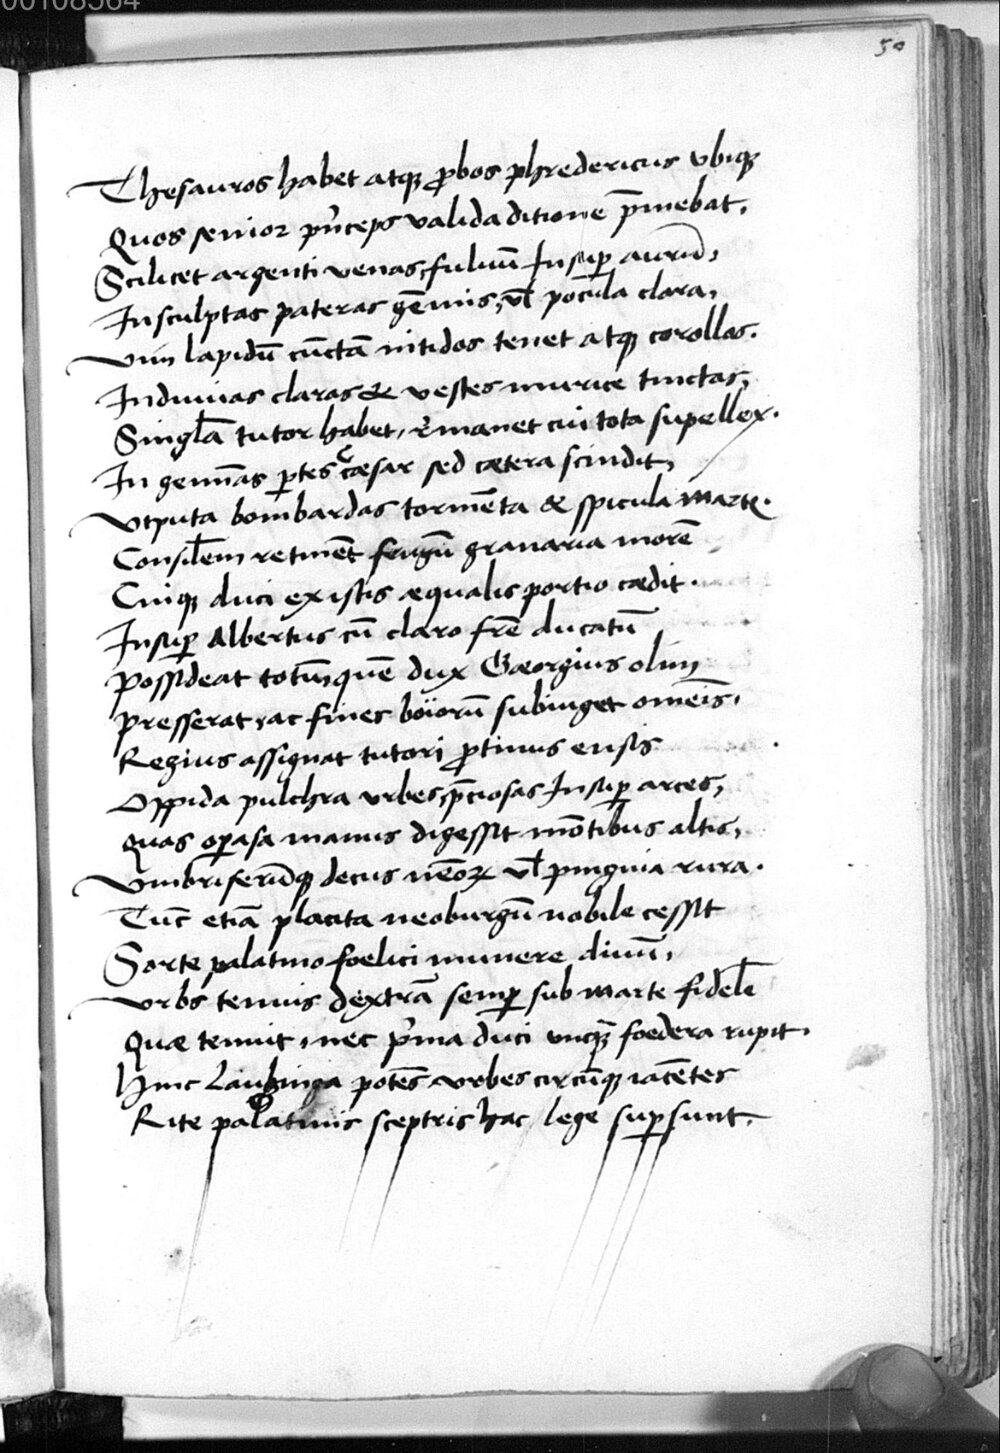 00108564
50
Thesauros habet atqꝫ ꝓbos phredericus vbiqꝫ
Quos senior pn̄ceps valida ditione p̄mebat.
Scilicet argenti venas, fuluū Insuꝑ aurū,
Insculptas pateras gēmis, vl̄ pocula clara,
Vim lapidū cūctā nitidos tenet atqꝫ corollas.
Induuias claras & vestes murice tinctas,
Singl̄a tutor habet, r̄manet cui tota supellex.
In geminas ꝑtes cæsar sed cætera scindit,
Vtputa bombardas tormēta & spicula Marte.
Consil̄em retinēt frugū granaria morē
Cuiqꝫ duci ex istis æqualis portio cædit.
Insuꝑ Albertus cū claro frē ducatū
Possideat totū, quē dux Gæorgius olim
Presserat, ac fines boiorū subiuget omēis.
Regius assignat tutori ꝓtinus ensis
Oppida pulchra vrbes, p̄ciosas Insuꝑ arces,
Quas oꝑasa manus digessit mōtibus altis,
Vmbriferūqꝫ decus nēoꝝ vl̄ pinguia rura.
Tūc etiā placita neoburgū nobile cessit
Sorte palatino foelici munere diuū,
Vrbs tenuis dextrā semꝑ sub marte fidel̄
Quæ tenuit, nec p̄ma duci vnqꝫ̄ foedera rupit.
Hinc Laubinga potēs vrbes circūqꝫ iacētes
Rite palatinis sceptris hac lege suꝑsunt.